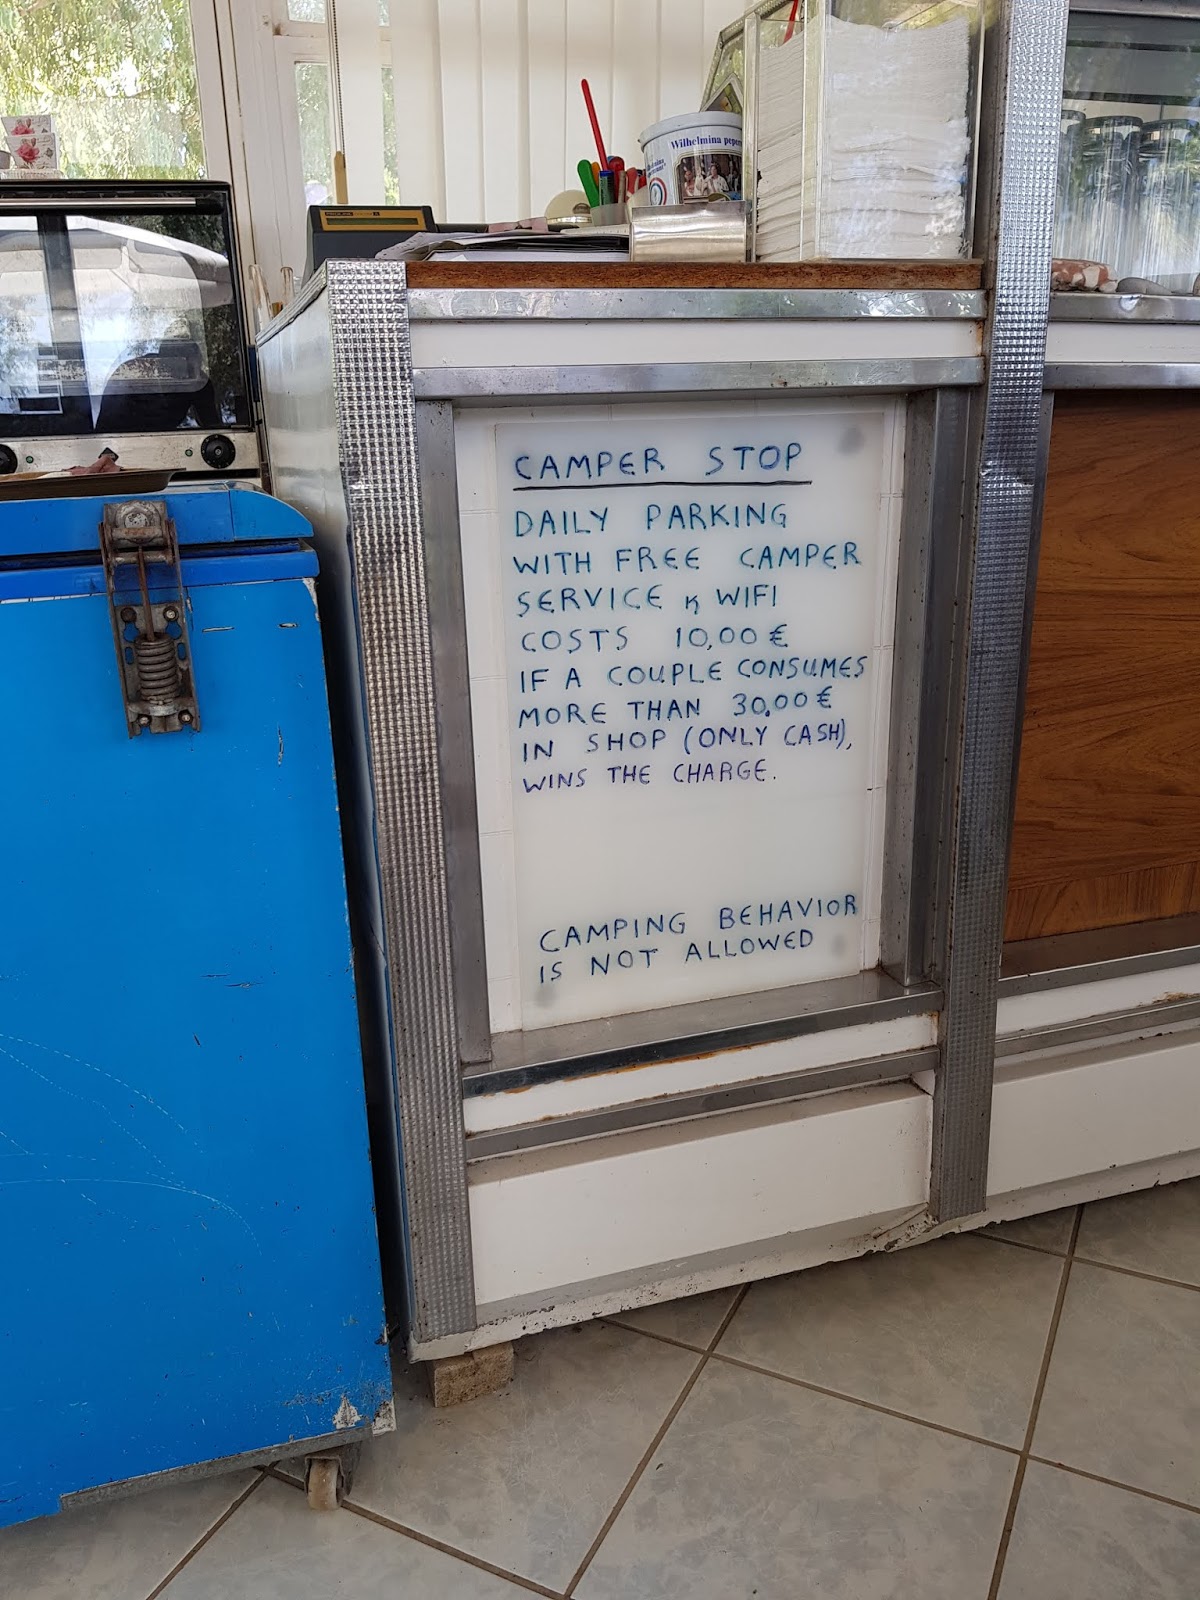 Wilhelmina peper
CAMPER STOP
DAILY PARKING
WITH FREE CAMPER
SERVICE κ WIFI
COSTS 10,00 €
IF A COUPLE CONSUMES
MORE THAN 30,00 €
IN SHOP (ONLY CASH),
WINS THE CHARGE.
CAMPING BEHAVIOR
IS NOT ALLOWED